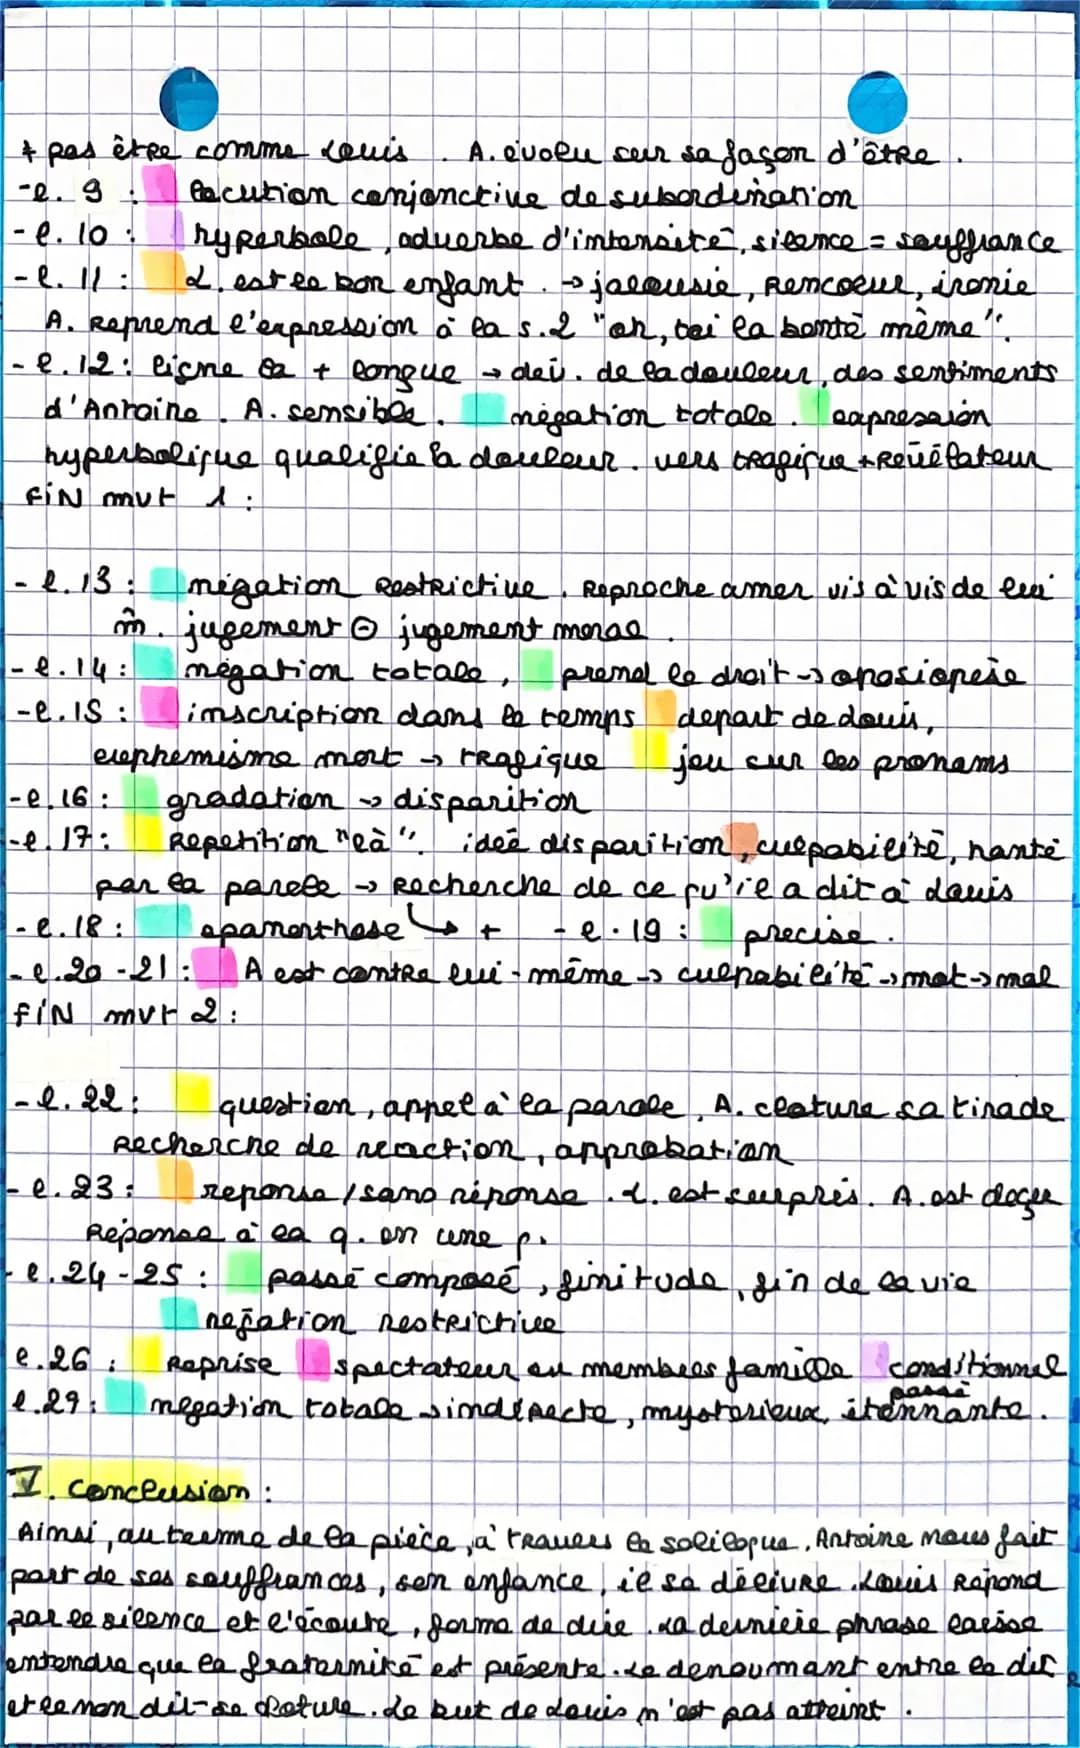 + pas être comme Louis. A. évolu sur sa façon d'être.
-l. 9 : locution conjonctive de subordination
-l. 10 : hyperbole, adverbe d'intensité, silence = souffrance
-l. 11 : L. est le bon enfant. → jalousie, rencoeur, ironie
A. Reprend l'expression à la s.2 "oh, toi la bonté même".
-l. 12 : ligne la + longue → dev. de la douleur, des sentiments
d'Antoine. A. sensible. négation totale. expression
hyperbolique qualifie la douleur. vers tragique + Révélateur
FiN mvt 1 :
-l. 13 : négation Restrictive. Reproche amer vis à vis de lui
m̂. jugement ⊖ jugement moral.
-l. 14 : négation totale, prend le droit → aposiopèse
-l. 15 : inscription dans le temps depart de Louis,
euphemisme mort → tragique jeu sur les pronoms
-l. 16 : gradation → disparition
-l. 17 : Repetition "là". ideé disparition, culpabilité, hanté
par la parole → Recherche de ce qu'il a dit à Louis
-l. 18 : epanorthose ↳ + -l. 19 : precise.
-l. 20-21 : A est contre lui-même → culpabilité → mot → mal
FiN mvt 2 :
-l. 22 : question, appel à la parole, A. cloture sa tirade
Recherche de reaction, approbation
-l. 23 : reponse / sans réponse. L. est surpris. A. est deçu
Réponse à la q. en une p.
-l. 24-25 : passé composé, finitude, fin de la vie
négation restrictive
l. 26 : Reprise spectateur ou membres famille conditionnel
passé
l. 29 : negation totale → indirecte, mysterieux, étonnante.
V. Conclusion :
Ainsi, au terme de la pièce, à travers la soliloque, Antoine nous fait
part de ses souffrances, son enfance, il se délivre. Louis Repond
par le silence et l'écoute, forme de duie. La dernière phrase laisse
entendre que la fraternité est présente. Le denoument entre le dit
et le non dit-se cloture. Le but de Louis n'est pas atteint.